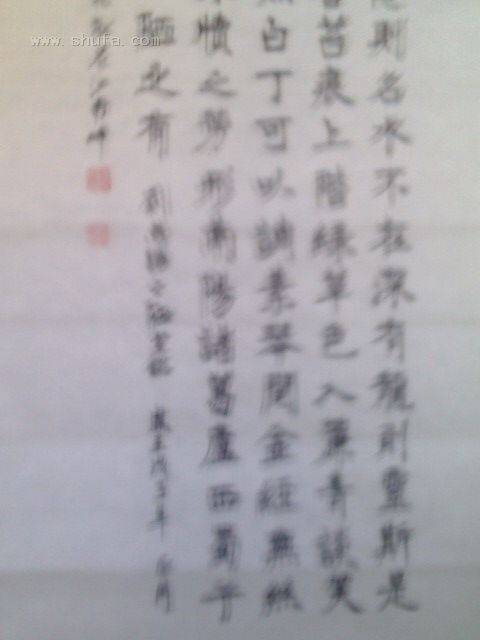 則名水不在深有龍則靈斯是
苔痕上階綠草色入簾青談笑
白丁可以調素琴閱金經無絲
牘之勞形南陽諸葛廬西蜀子
陋之有 劉禹錫之陋室銘 戊子年
www.shufa.com